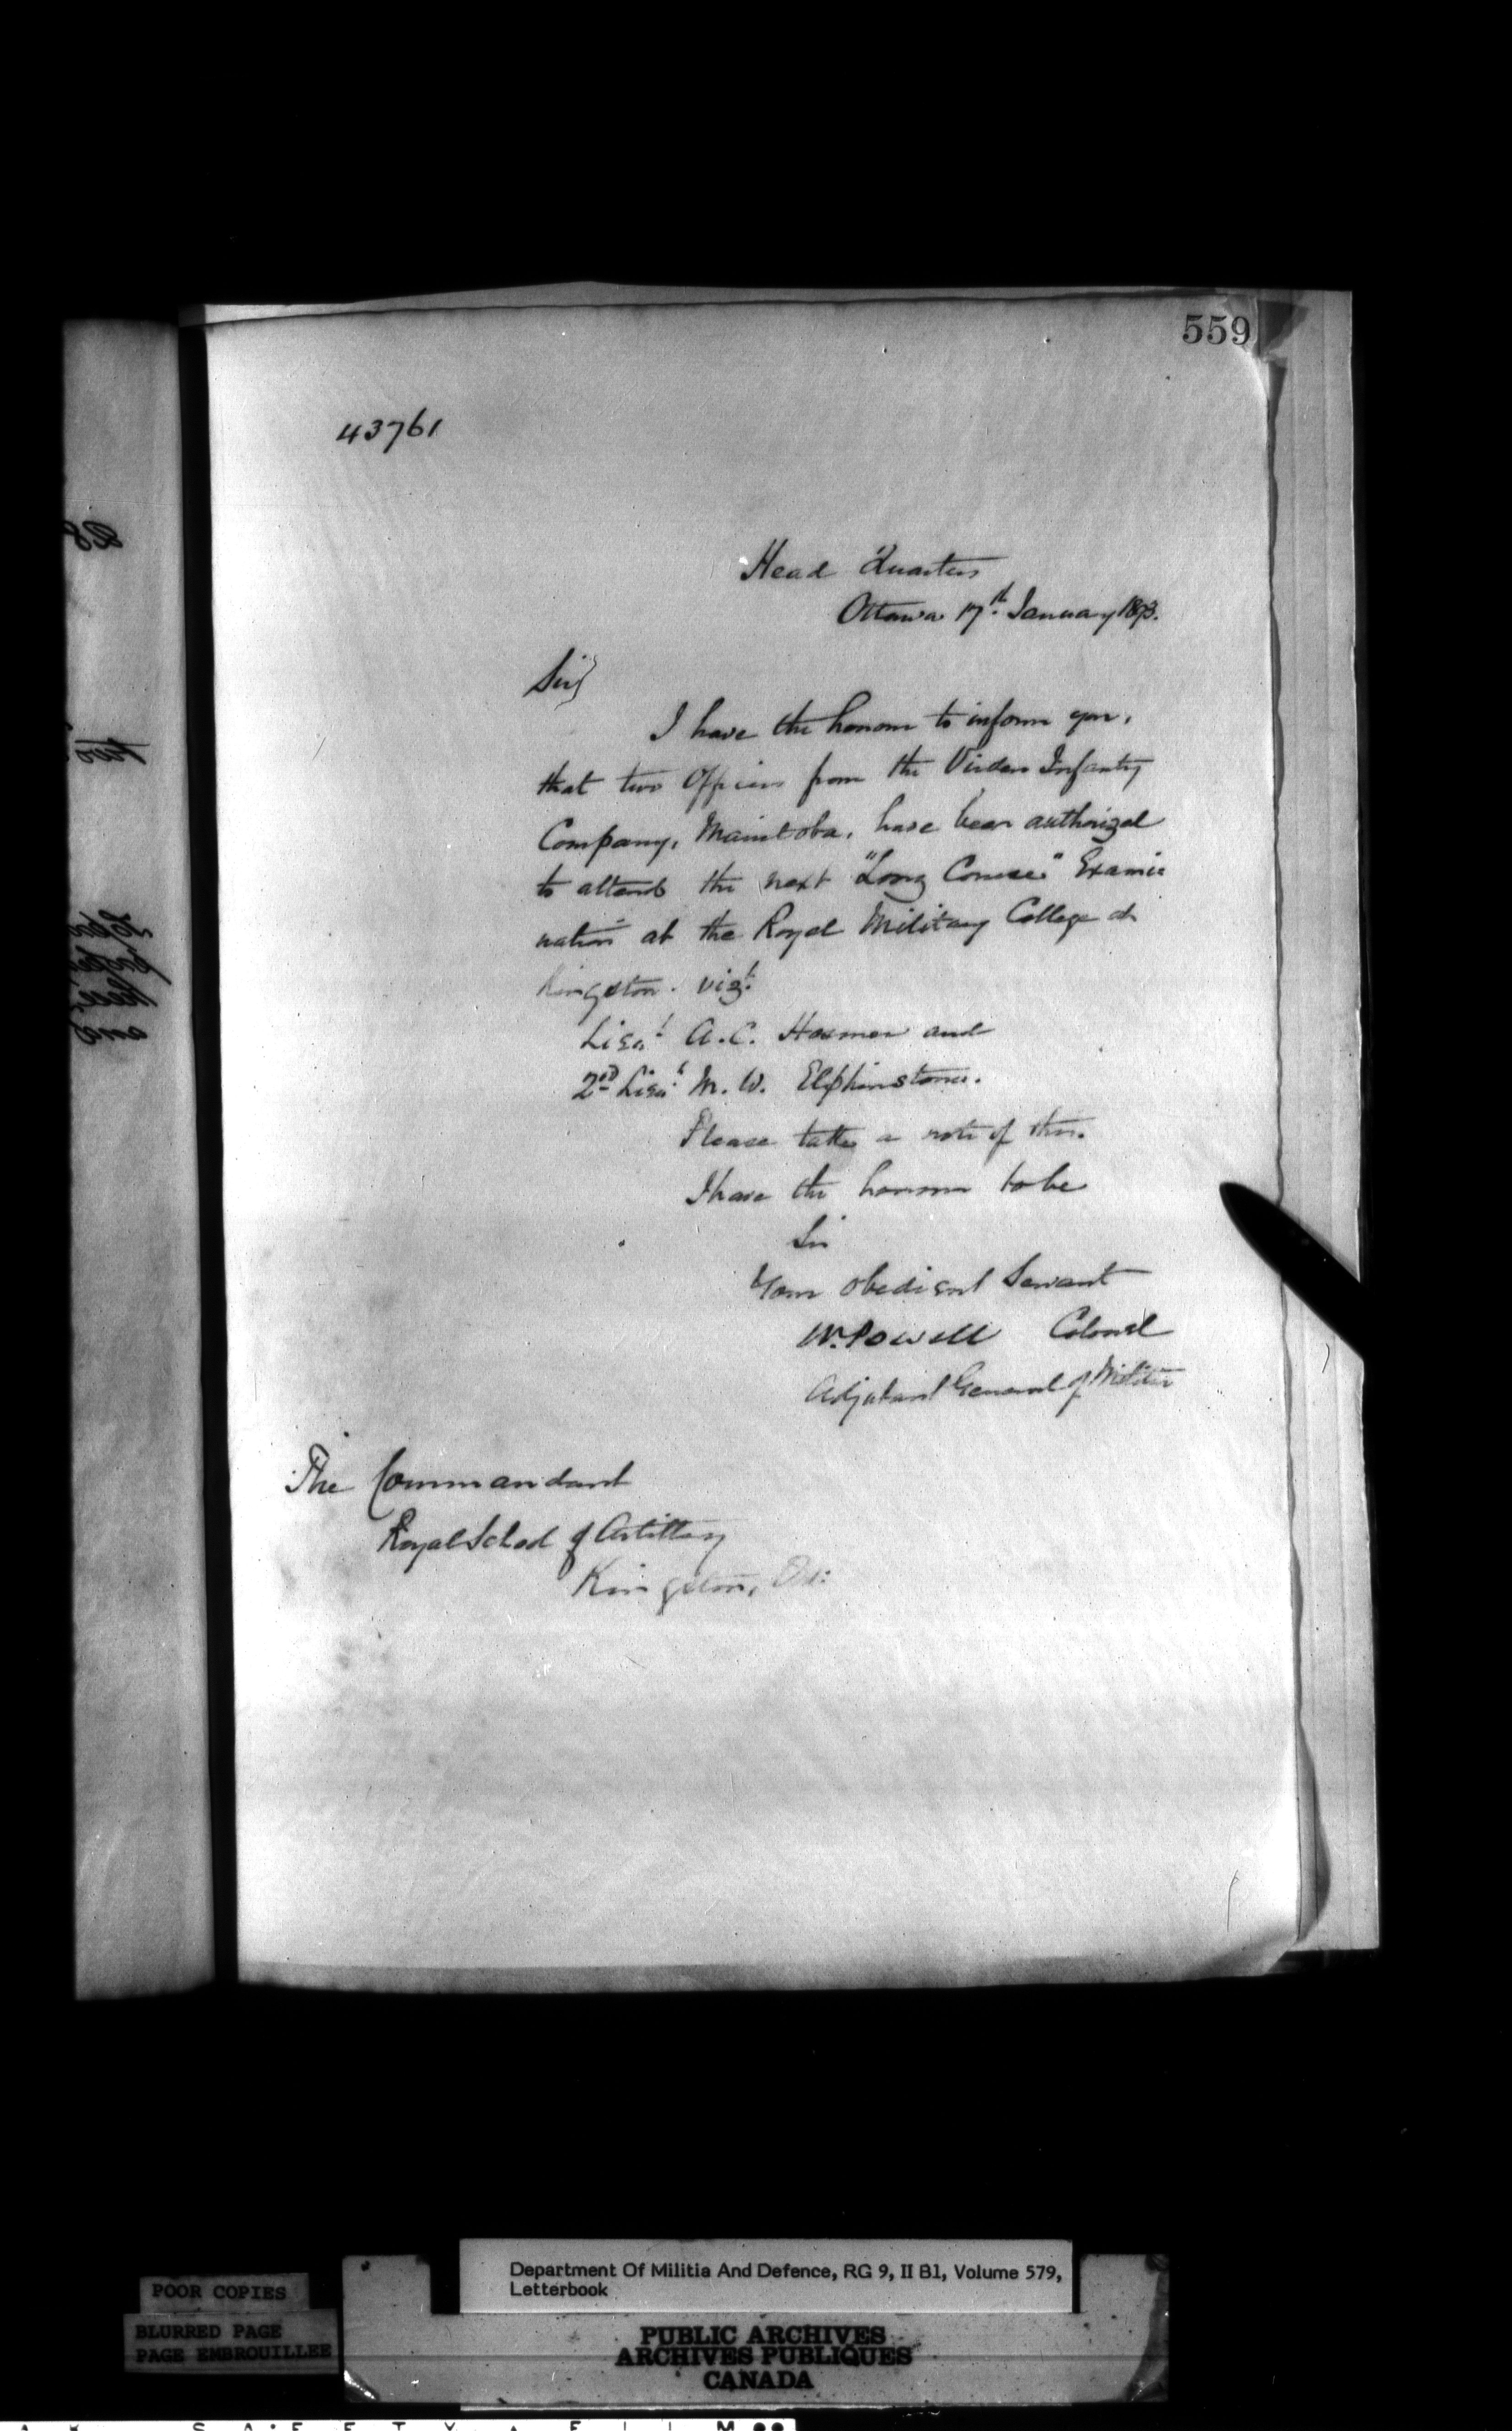 559
43761
Head Quarters
Ottawa 17th January 1893.
Sir,
I have the honour to inform you,
that two Officers from the Virden Infantry
Company, Manitoba, have been authorized
to attend the next "Long Course" Exami
nation at the Royal Military College at
Kingston. vizt.
Lieut A.C. Hosmer and
2nd Lieut M. W. Elphinstone.
Please take a note of this.
I have the honour to be
Sir
Your obedient Servant
W. Powell Colonel
Adjutant General of Militia
The Commandant
Royal School of Artillery
Kingston, Ont:
two
and
Department Of Militia And Defence, RG 9, II B1, Volume 579,
Letterbook
POOR COPIES
BLURRED PAGE
PAGE EMBROUILLEE
PUBLIC ARCHIVES
ARCHIVES PUBLIQUES
CANADA
SAFETY FILM